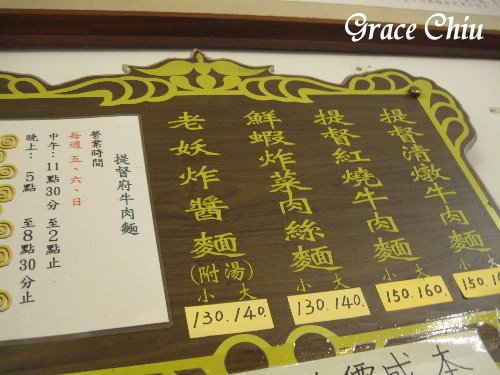 Grace Chiu
提督清燉牛肉麵
小 大
150.1
提督紅燒牛肉麵
小 大
150.160.
鮮蝦炸菜肉絲麵
小 大
130.140.
老妖炸醬麵
(附湯)
小 大
130.140.
提督府牛肉麵
營業時間
每週五、六、日
中午：11點30分 至2點止
晚上：5點 至8點30分止
價成本